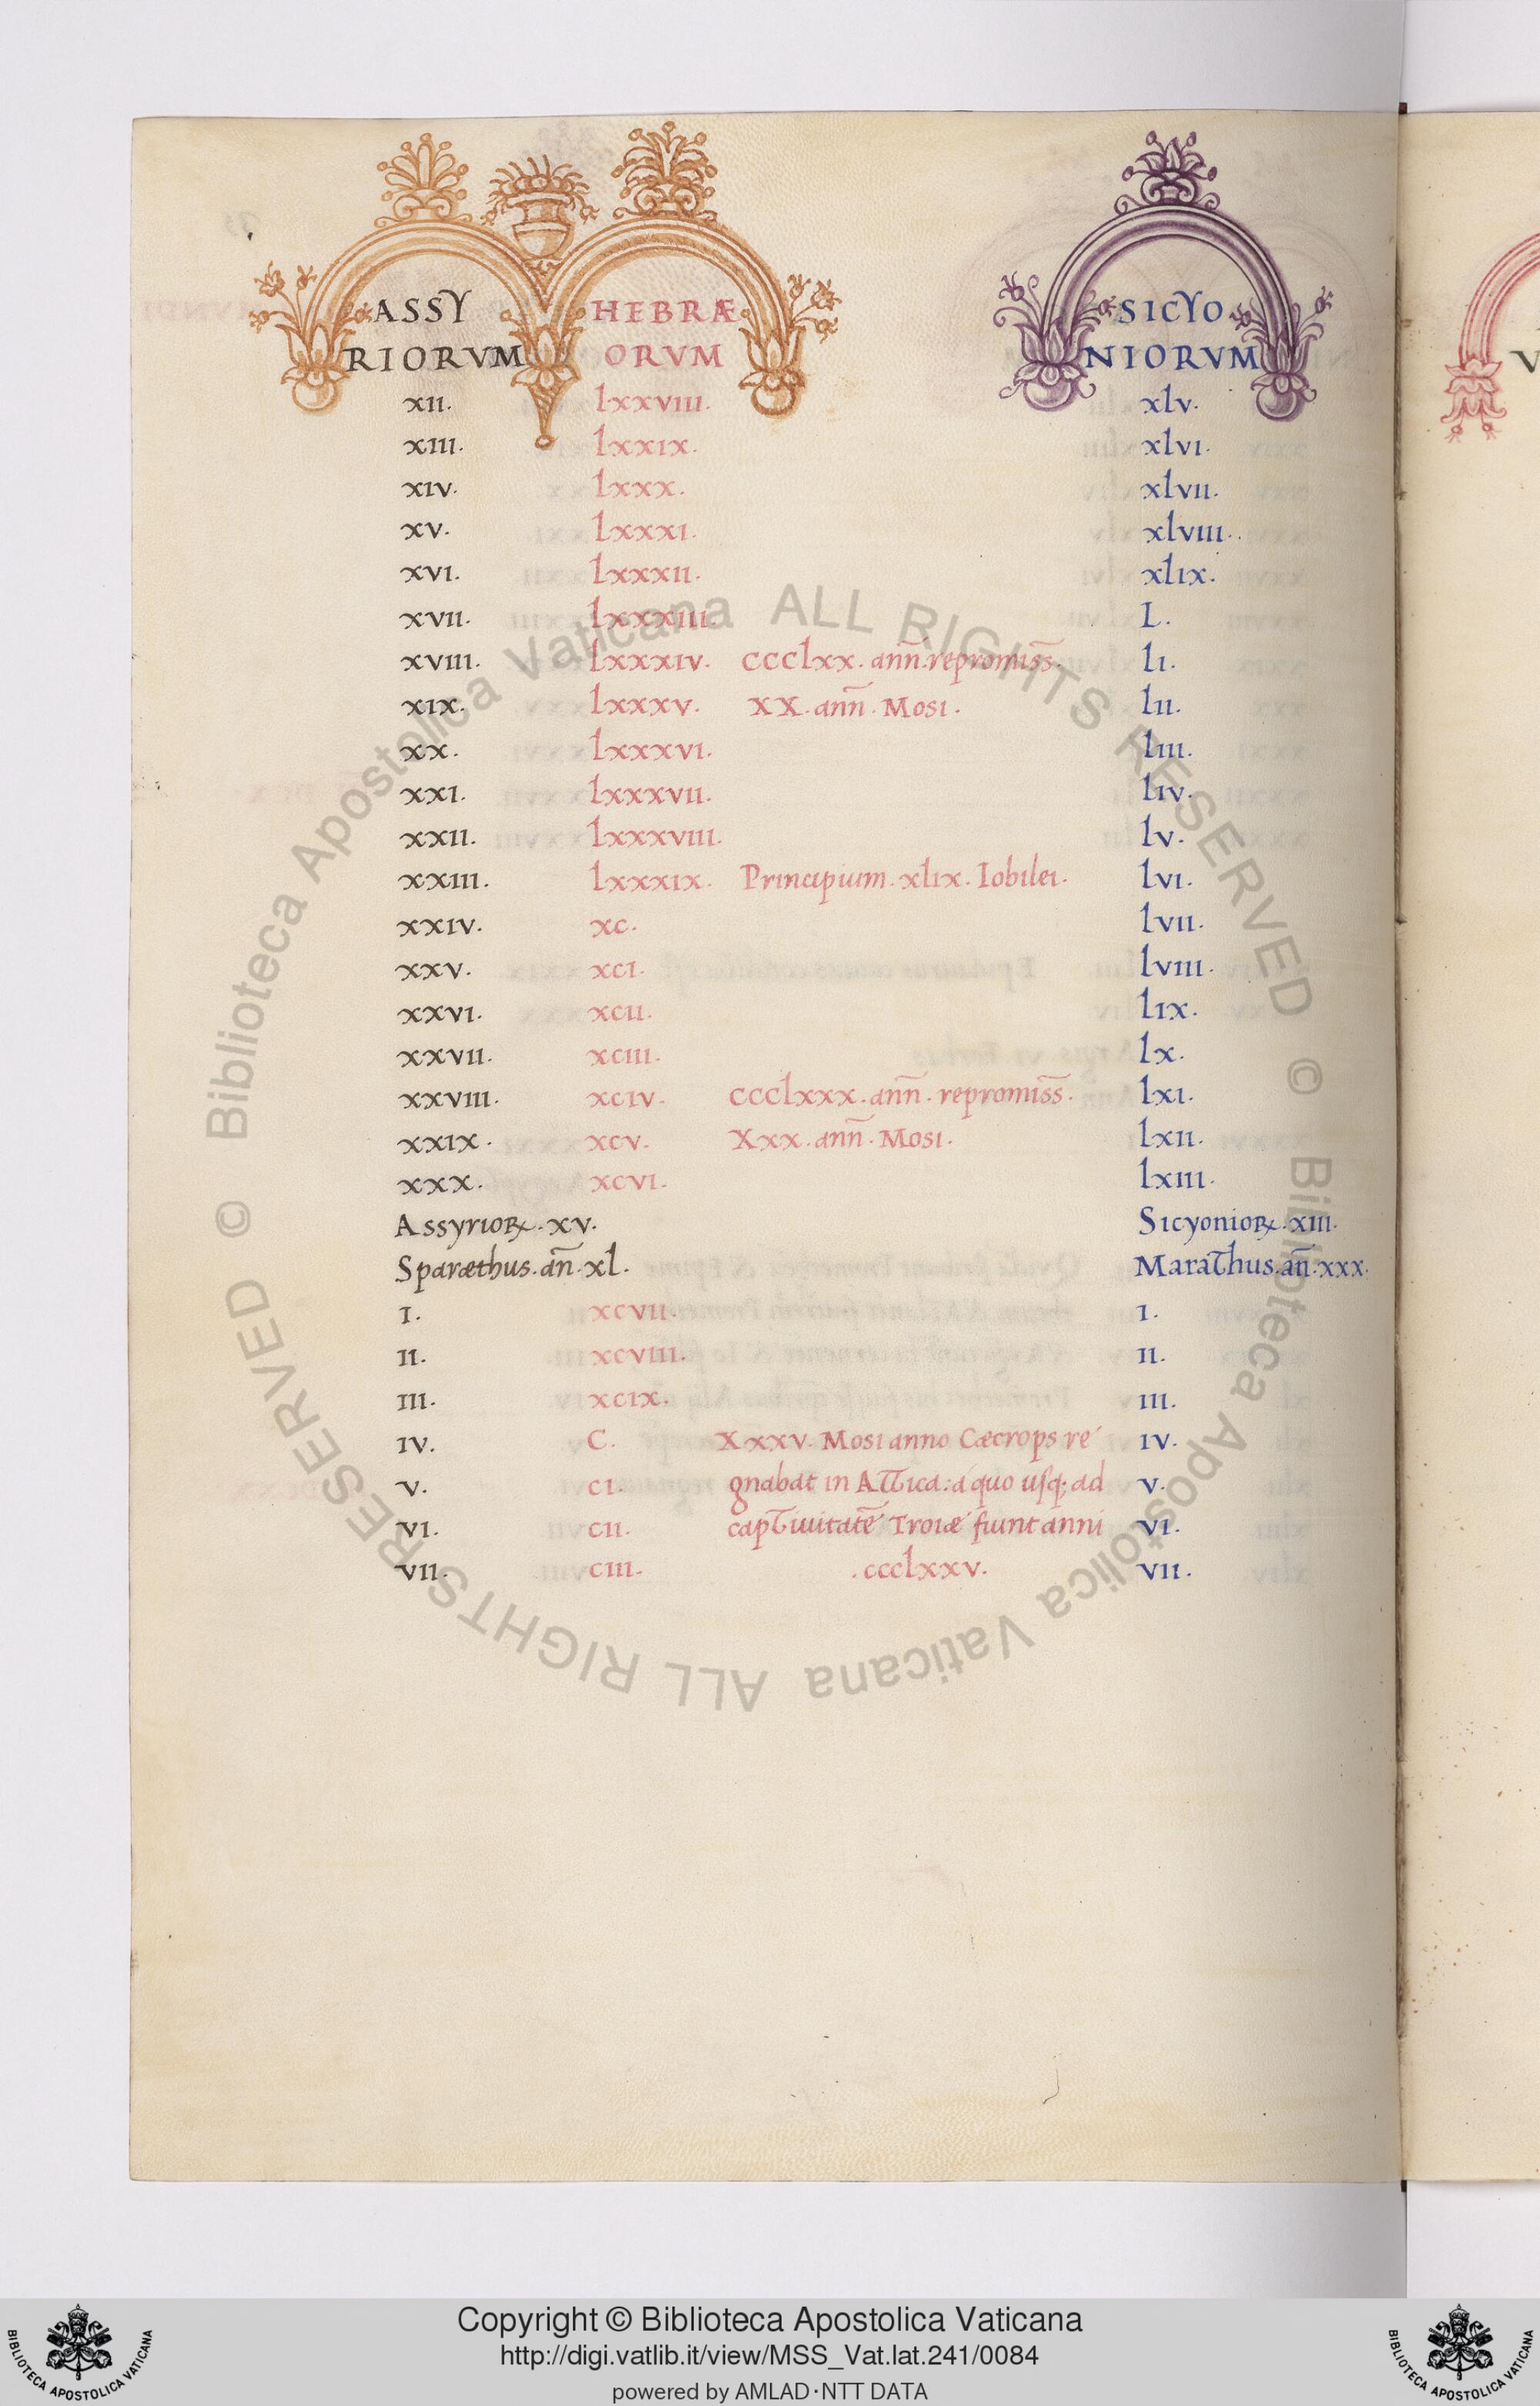 ASSY HEBRÆ SICYO
RIORVM ORVM NIORVM
XII. lxxviii. xlv.
XIII. lxxix. xlvi.
XIV. lxxx. xlvii.
XV. lxxxi. xlviii.
XVI. lxxxii. xlix.
XVII. lxxxiii. L.
XVIII. lxxxiv. ccclxx. ann̄. repromiss̄. li.
XIX. lxxxv. XX. ann̄. Mosi. lii.
XX. lxxxvi. liii.
XXI. lxxxvii. liv.
XXII. lxxxviii. lv.
XXIII. lxxxix. Principium. xlix. Iobilei. lvi.
XXIV. xc. lvii.
XXV. xci. lviii.
XXVI. xcii. lix.
XXVII. xciii. lx.
XXVIII. xciv. ccclxxx. ann̄. repromiss̄. lxi.
XXIX. xcv. Xxx. ann̄. Mosi. lxii.
XXX. xcvi. lxiii.
Assyrioꝝ. xv. Sicyonioꝝ. xiii.
Sparæthus. an̄. xl. Marathus. an̄. xxx.
I. xcvii. I.
II. xcviii. II.
III. xcix. III.
IV. C. Xxxv. Mosi anno Cæcrops re IV.
V. ci. gnabat in Attica: a quo usq; ad V.
VI. cii. captiuitatē Troiæ fiunt anni VI.
VII. ciii. .ccclxxv. VII.
© Biblioteca Apostolica Vaticana ALL RIGHTS RESERVED
© Biblioteca Apostolica Vaticana ALL RIGHTS RESERVED
V
Copyright © Biblioteca Apostolica Vaticana
http://digi.vatlib.it/view/MSS_Vat.lat.241/0084
powered by AMLAD·NTT DATA
BIBLIOTECA APOSTOLICA VATICANA
BIBLIOTECA APOSTOLICA VATICANA